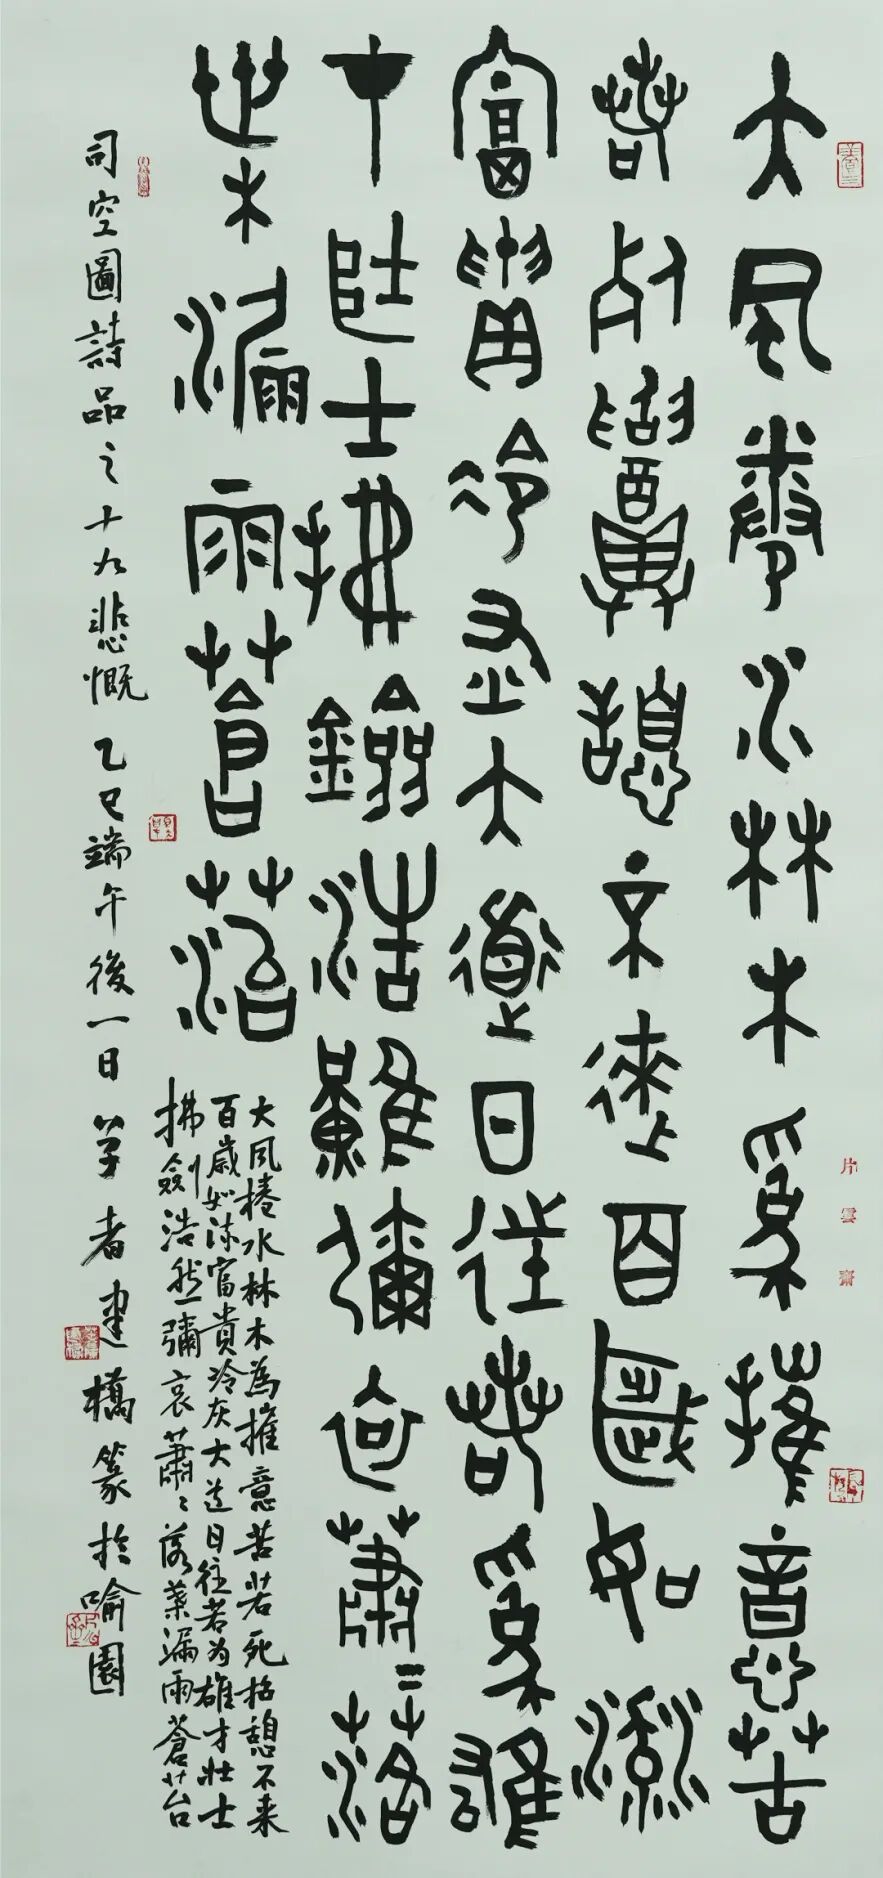 片雲齋
大風捲水林木為摧意苦
若死招憩不來百歲如流
富貴冷灰大道日往若為雄
才壯士拂劍浩然彌哀蕭〻落
葉漏雨蒼苔
大風捲水林木為摧意苦若死招憩不来
百歲如流富貴冷灰大道日往若为雄才壯士
拂劍浩然彌哀蕭〻落葉漏雨蒼苔
司空圖詩品之十九悲慨 乙巳端午後一日 者建橋篆於喻園